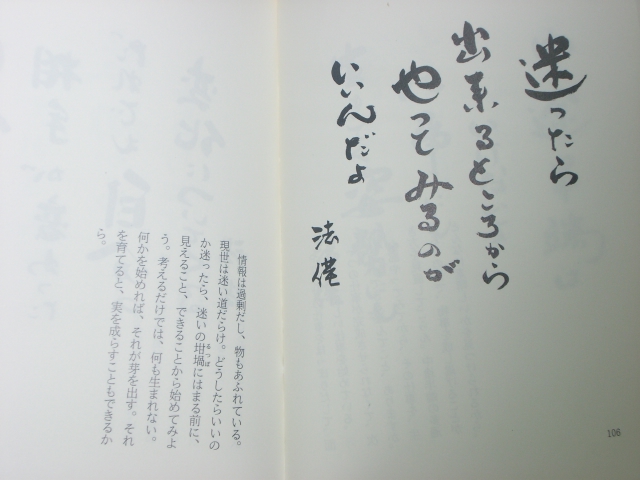 迷ったら
出来るところから
やってみるのが
いいんだよ
法僙
106
情報は過剰だし、物もあふれている。
現世は迷い道だらけ。どうしたらいいの
か迷ったら、迷いの坩堝にはまる前に、
見えること、できることから始めてみよ
う。考えるだけでは、何も生まれない。
何かを始めれば、それが芽を出す。それ
を育てると、実を成らすこともできるか
ら。